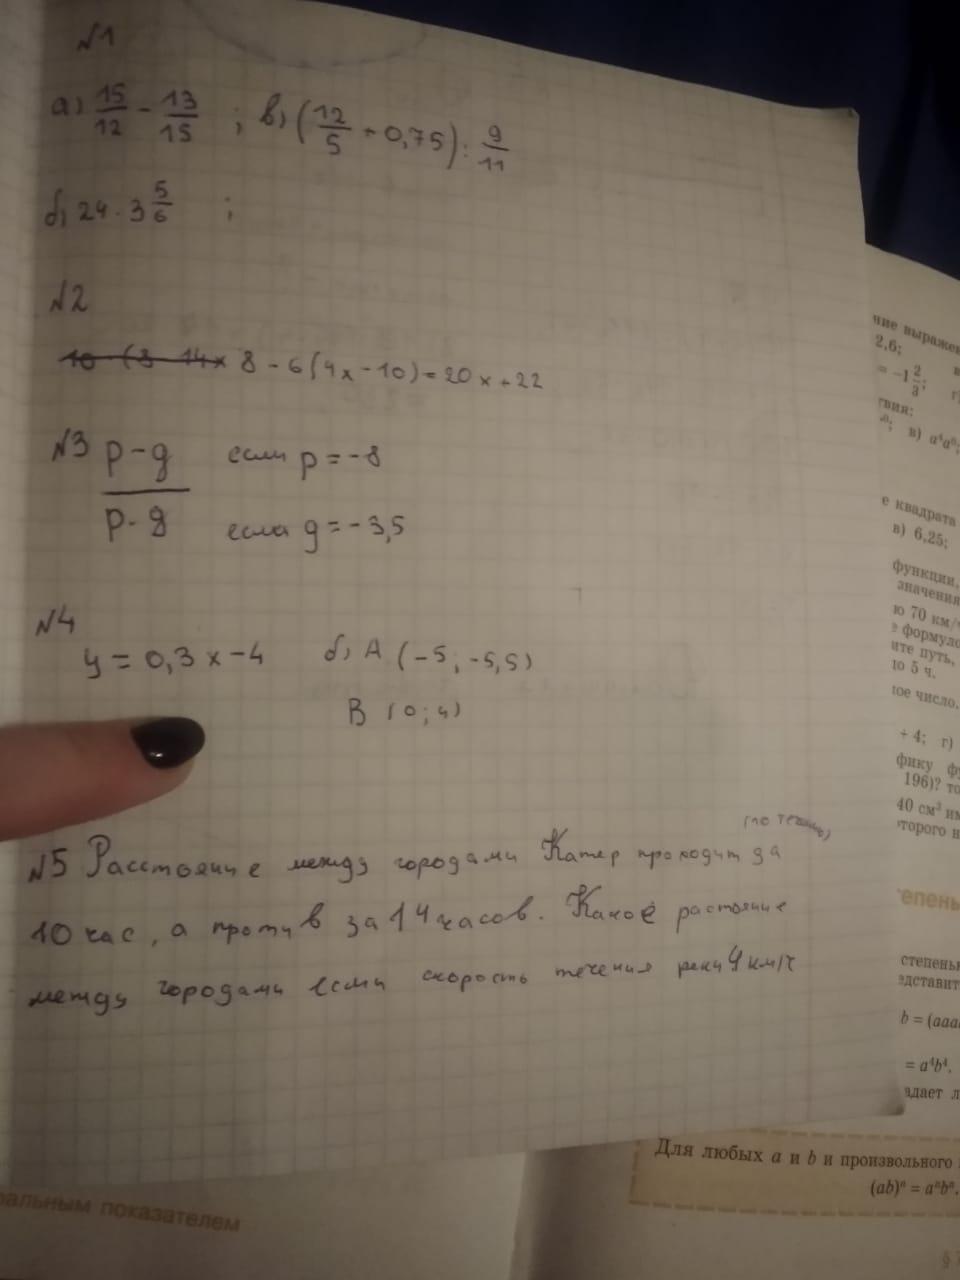 №1
а) 15/12 - 13/15 ; в) (12/5 + 0,75) : 9/11
б) 24 · 3 5/6 ;
№2
8 - 6(4x - 10) = 20x + 22
№3 p - g если p = -8
p · g если g = -3,5
№4
y = 0,3x - 4 б) A (-5; -5,5)
B (0; 4)
(по течению)
№5 Расстояние между городами Катер проходит за
10 час, а против за 14 часов. Какоё растояние
между городами если скорость течения реки 4 км/ч
ние выражен
2,6;
= -1 2/3; г)
ствия;
в) a⁴a⁰;
е квадрата
в) 6,25;
функции,
значения
ю 70 км/ч
е формуло
ите путь,
ло 5 ч.
ное число,
+ 4; г)
фику фу
196)? то
40 см³ им
оторого н
епень
степень
едставит
b = (aaa
= a⁴b⁴.
адает л
Для любых a и b и произвольного
(ab)ⁿ = aⁿbⁿ.
ральным показателем
§